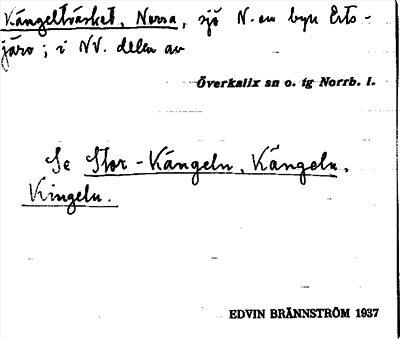 Kängelträsket, Norra, sjö N. om byn Erts-
järv; i NV. delen av
Överkalix sn o. tg Norrb. l.
Se Stor-Kängeln, Kängeln,
Kingeln.
EDVIN BRÄNNSTRÖM 1937